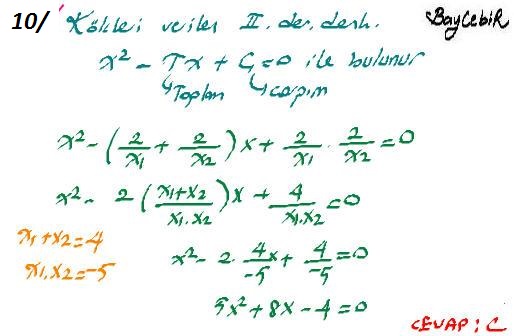 10/ Kökleri verilen II. der. denk.
BayCebiR
x² - Tx + Ç = 0 ile bulunur
Toplam Çarpım
x² - (2/x₁ + 2/x₂)x + 2/x₁ · 2/x₂ = 0
x² - 2(x₁+x₂/x₁.x₂)x + 4/x₁.x₂ = 0
x₁+x₂=4
x₁.x₂=-5
x² - 2 · 4/-5 x + 4/-5 = 0
5x² + 8x - 4 = 0
CEVAP : C